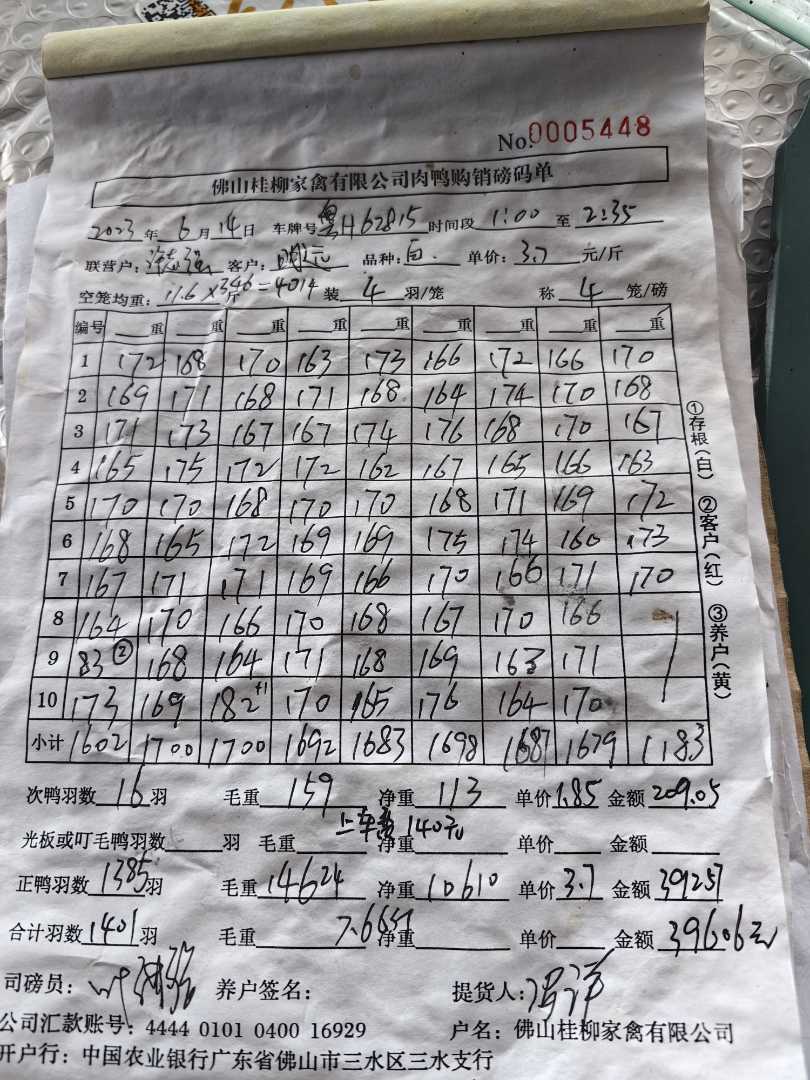 No.0005448
佛山桂柳家禽有限公司肉鸭购销磅码单
2023年 6月14日 车牌号粤H62815 时间段 1:00 至 2:35
联营户: 客户: 明远 品种: 白. 单价: 3.7 元/斤
空笼均重: 11.6×346斤=4014 装 4 羽/笼 称 4 笼/磅
编号 重 重 重 重 重 重 重 重 重
1 172 168 170 163 173 166 172 166 170
2 169 171 168 171 168 164 174 170 168
3 171 173 167 167 174 176 168 170 167
4 165 175 172 172 162 167 165 166 163
5 170 170 168 170 170 168 171 169 172
6 168 165 172 169 169 175 174 160 173
7 167 171 171 169 166 170 166 171 170
8 164 170 166 170 168 167 170 166
9 83② 168 164 171 168 169 163 171
10 173 169 182+1 170 165 176 164 170
小计 1602 1700 1700 1692 1683 1698 1687 1679 1183
①存根(白) ②客户(红) ③养户(黄)
次鸭羽数 16 羽 毛重 159 净重 113 单价1.85 金额 209.05
上车费 140元
光板或叮毛鸭羽数 羽 毛重 净重 单价 金额
正鸭羽数 1385羽 毛重 14624 净重 10610 单价 3.7 金额 39257
合计羽数 1401 羽 毛重 7.6557 净重 单价 金额 39606元
司磅员: 养户签名: 提货人:
公司汇款账号: 4444 0101 0400 16929 户名: 佛山桂柳家禽有限公司
开户行: 中国农业银行广东省佛山市三水区三水支行